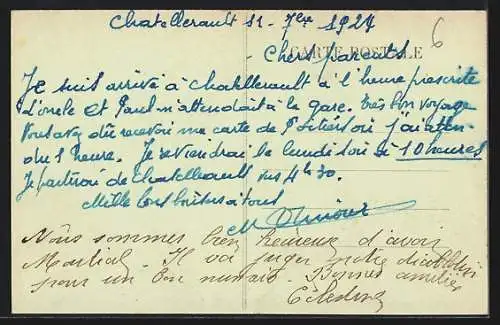 Chatellerault 11 - 7bre 1927
CARTE POSTALE
6
Chers parents
Je suis arrivé à Chatellerault à l'heure prescrite
L'oncle et Paul m'attendait à la gare. Très bon voyage
Vous avez dû recevoir ma carte de Poitiers où j'ai atten-
du 1 heure. Je reviendrai le lundi soir à 10 heures
Je partirai de Chatellerault vers 4h 30.
Mille bons baisers à tous
M
Nous sommes bien heureux d'avoir
Martial. Il va juger notre
pour un bon numéro. Bonnes amitiés